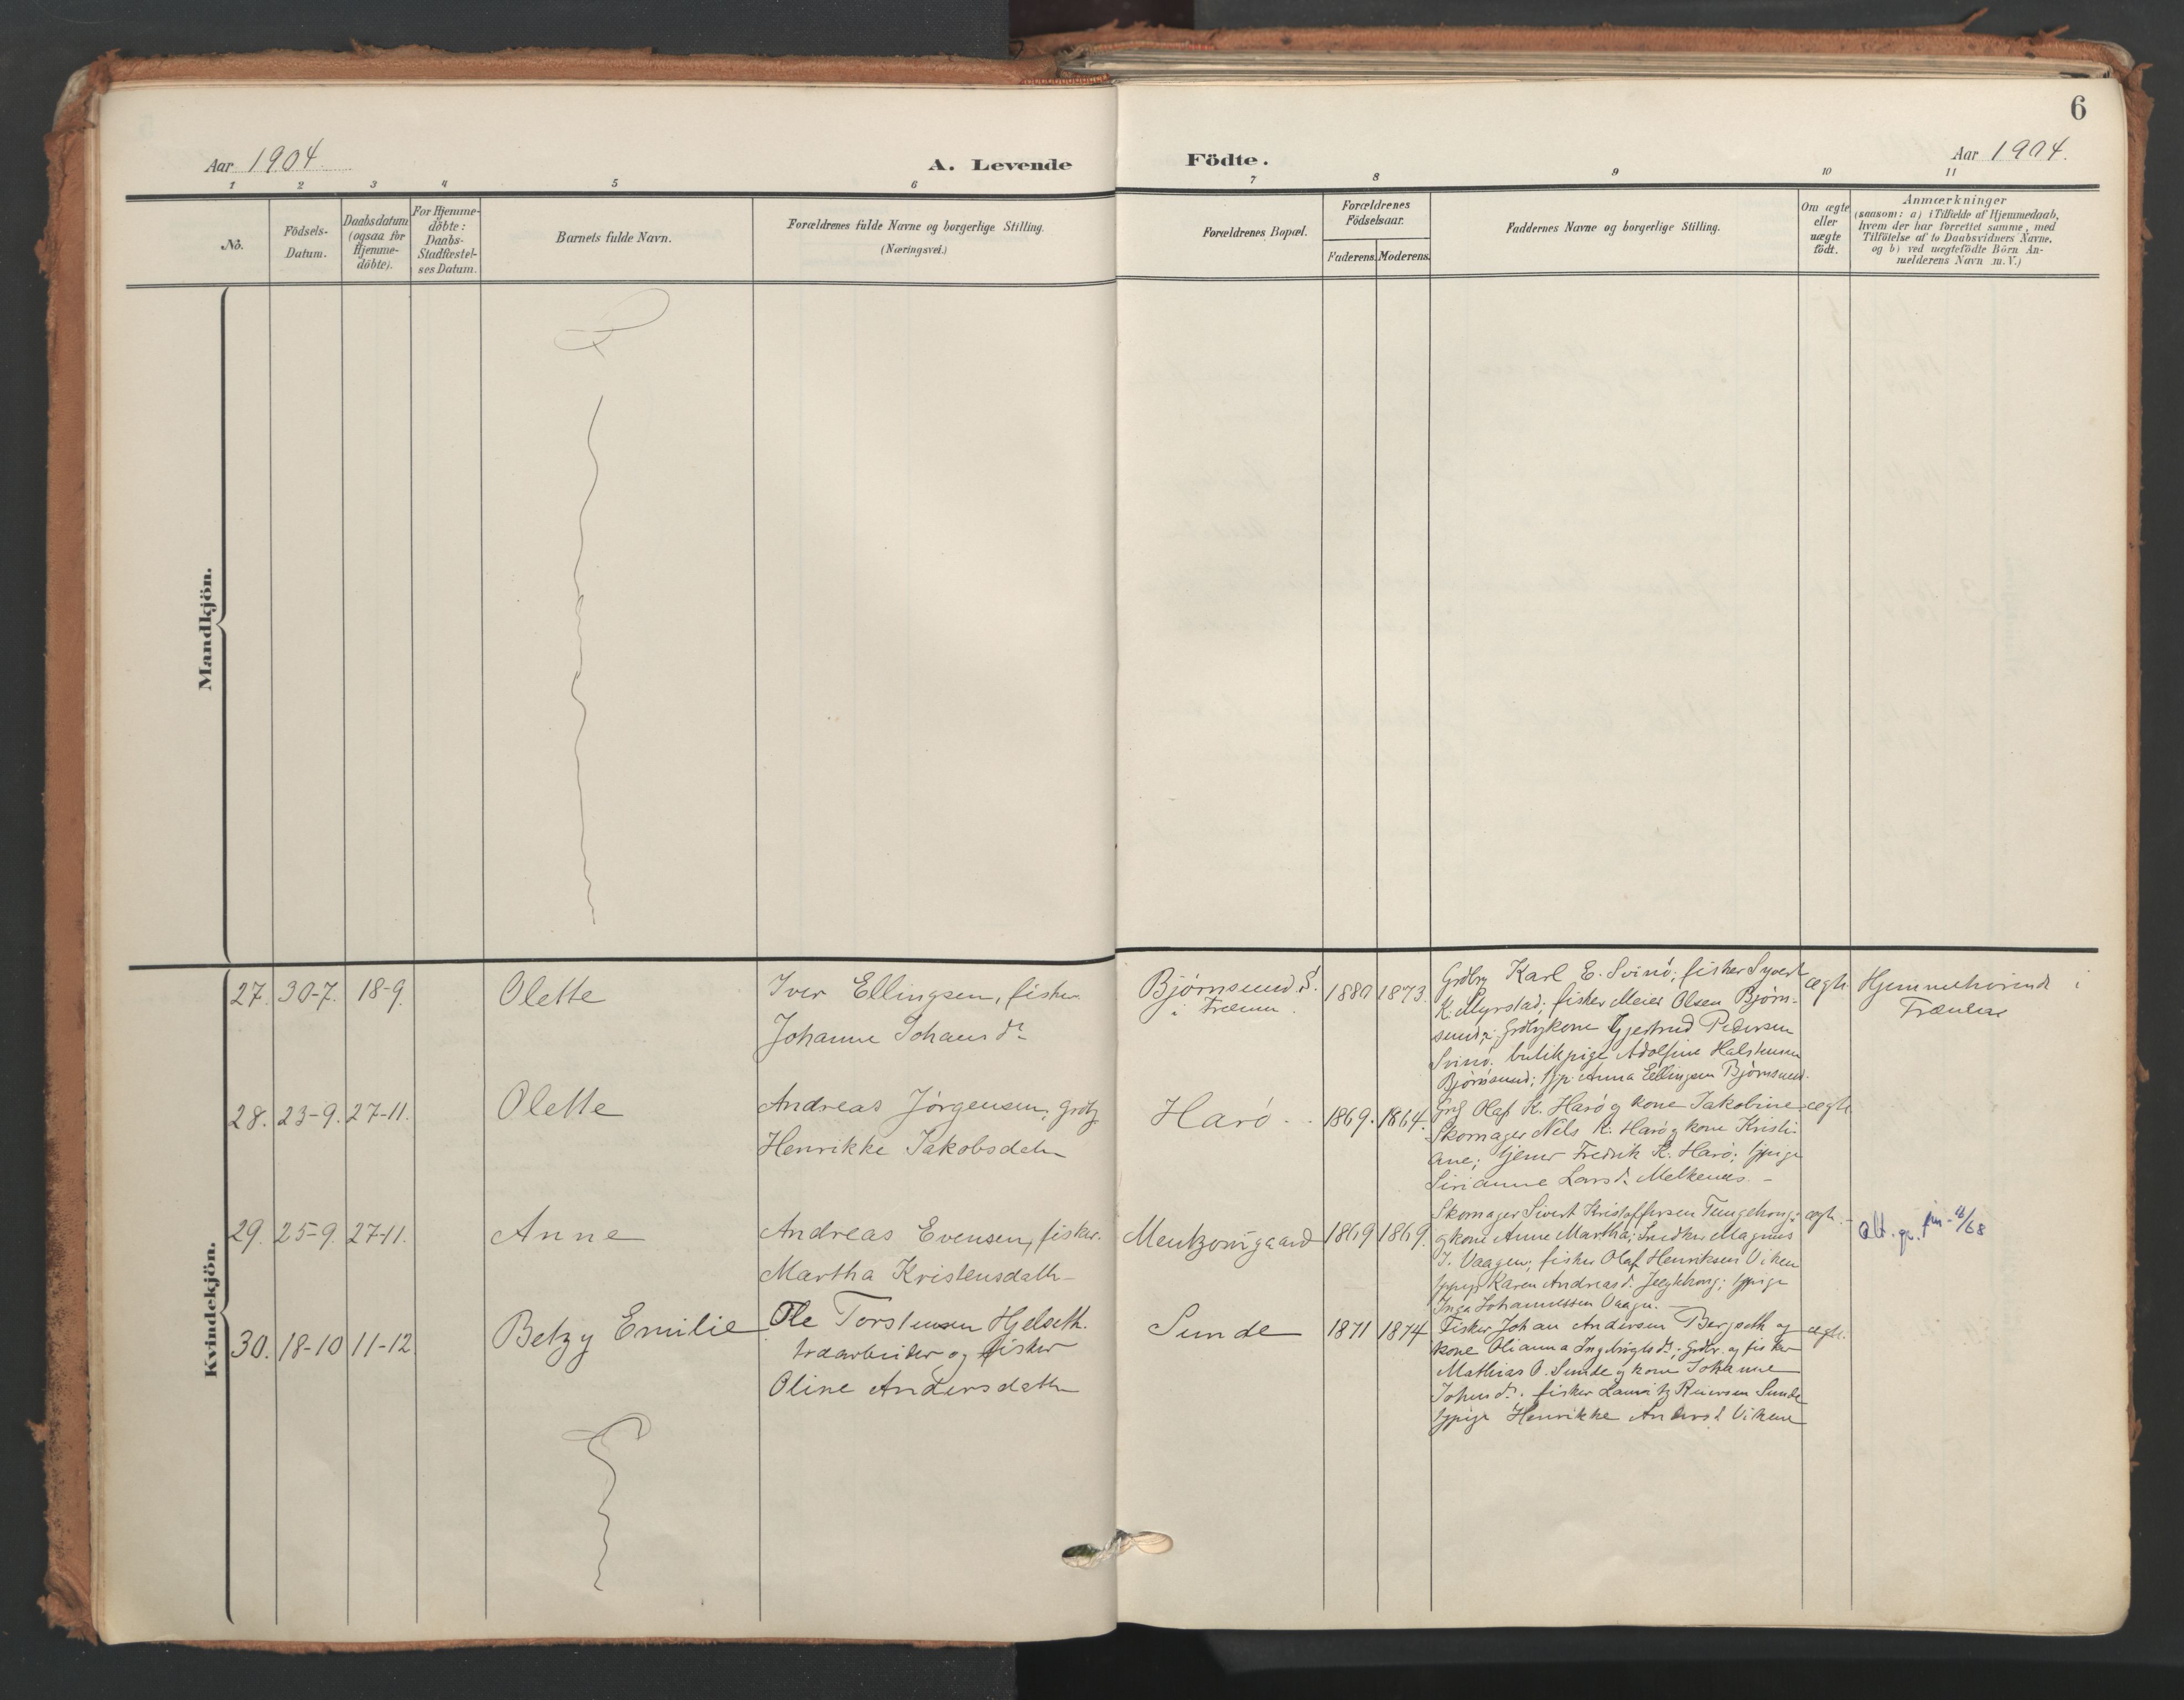 6
Aar 1904.
A. Levende
Födte.
Aar 1904.
1 2 3 4 5 6 7 8 9 10 11
Nô.
Födsels-
Datum.
Daabsdatum
(ogsaa for
Hjemme-
döbte).
For Hjemme-
döbte:
Daabs-
Stadfæstel-
ses Datum.
Barnets fulde Navn.
Forældrenes fulde Navne og borgerlige Stilling.
(Næringsvei.)
Forældrenes Bopæl.
Forældrenes
Födselsaar.
Faderens. Moderens.
Faddernes Navne og borgerlige Stilling.
Om ægte
eller
uægte
födt.
Anmærkninger
(saasom: a) i Tilfælde af Hjemmedaab,
hvem der har forrettet samme, med
Tilföielse af to Daabsvidners Navne,
og b) ved uægtefödte Börn An-
melderens Navn m. V.)
Mandkjön.
Kvindekjön.
27. 30-7. 18-9. Olette
Iver Ellingsen, fisker.
Johanne Johansdr
Bjørnsund S.
i Frænen.
1880 1873.
Grdbr Karl E. Svinö; fisker Syvert
K. Myrstad; fisker Meier Olsen Bjørn-
sund; Grdbrkone Gjertrud Pedersen
Svinö. butikpige Adolfine Halstensen
Bjørnsund; Anna Ellingsen Bjørnsund.
ægte.
Hjemmehörende i
Frænen
28. 23-9. 27-11. Olette
Andreas Jörgensen, grdbr
Henrikke Jakobsdatr
Harö
1869. 1864.
Olaf K. Harö og kone Jakobine
Skomager Nils K. Harö og kone Kristi-
ane; tjener Fredrik K. Harö; tjpige
Sirianne Larsdr Melkenes. -
ægte
29. 25-9. 27-11. Anne
Andreas Evensen, fisker.
Martha Kristensdatr
Mentzonigaard
1869 1869.
Skomager Sivert Kristoffersen Tungehoug
og kone Anne Martha; Snedker Magnus
J. Vaagen; fisker Olaf Henriksen Viken
Karen Andreasdr. ; tjpige
Inga Johannessen Vaagn. -
ægte. -
30. 18-10 11-12 Betzy Emilie
Ole Torstensen Hjelseth.
træarbeider og fisker
Oline Andersdatr
Sunde
1871 1874
Fisker Johan Andersen Bergseth og
kone Olianna Ingebrigtsdr.; grdbr. og fisker
Mathias O. Sunde og kone Johanne
Johnsdr. fisker Lauritz Reiersen Sunde
tjpige Henrikke Andersd Vikene
ægte.